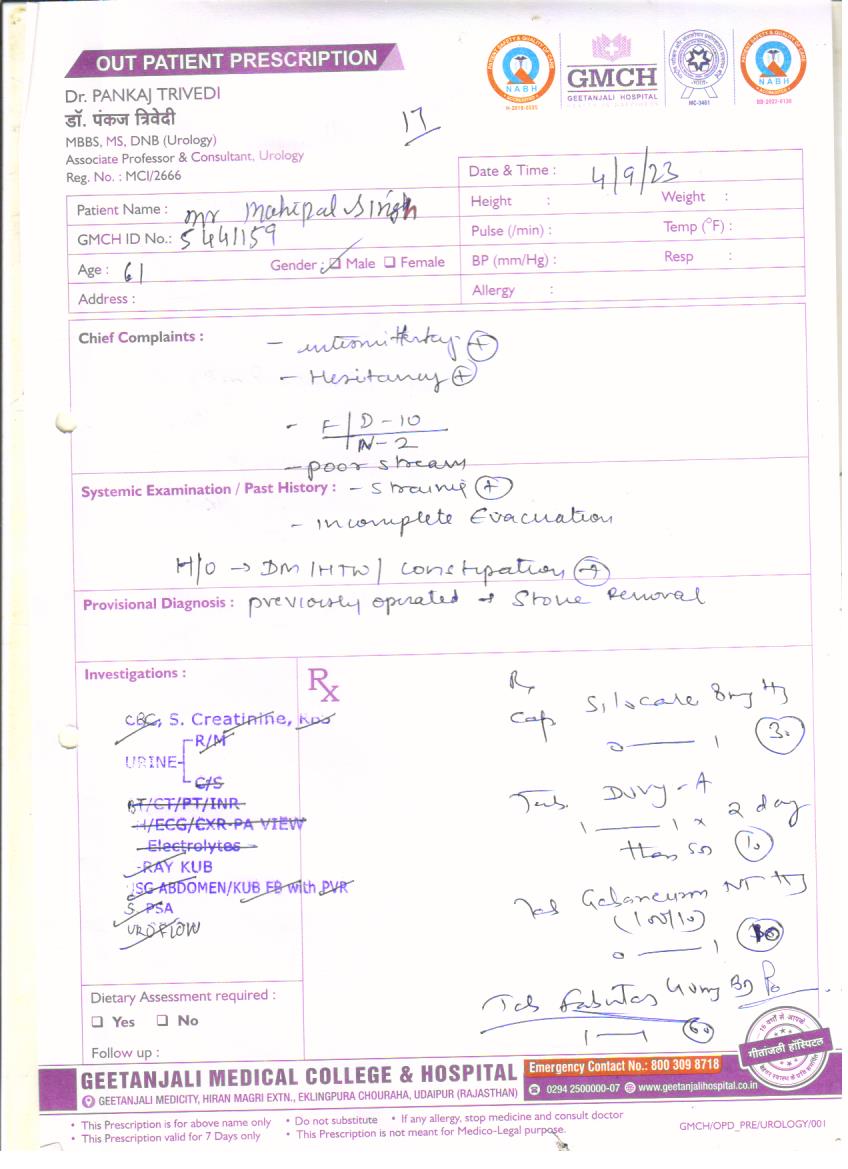 OUT PATIENT PRESCRIPTION
Dr. PANKAJ TRIVEDI
डॉ. पंकज त्रिवेदी
MBBS, MS, DNB (Urology)
Associate Professor & Consultant, Urology
Reg. No. : MCI/2666
17
NABH
GMCH
GEETANJALI HOSPITAL
MC-3461
NABH
Date & Time : 4/9/23
Patient Name : mr mahipal Singh
GMCH ID No.: 5441159
Age : 61
Gender : Male Female
Address :
Height : Weight :
Pulse (/min) : Temp (°F) :
BP (mm/Hg) : Resp :
Allergy :
Chief Complaints :
- Hesitancy +
- F D-10
N-2
- poor stream
Systemic Examination / Past History : - +
- Incomplete Evacuation
H/O → DM /HTN/ constipation
Provisional Diagnosis : previously operated → Stone Removal
Investigations :
CBC, S. Creatinine, RBS
URINE R/M
C/S
BT/CT/PT/INR
/ECG/CXR-PA VIEW
Electrolytes
-RAY KUB
USG ABDOMEN/KUB FB with PVR
S. PSA
UROFLOW
Rx
Rx
Cap 8mg
0 —— 1
Tab. - A
1 —— 1 x 2 day
10
Tab NT
0 —— 1
Tab 40mg
60
Dietary Assessment required :
Yes No
Follow up :
गीतांजली हॉस्पिटल
GEETANJALI MEDICAL COLLEGE & HOSPITAL
GEETANJALI MEDICITY, HIRAN MAGRI EXTN., EKLINGPURA CHOURAHA, UDAIPUR (RAJASTHAN)
Emergency Contact No.: 800 309 8718
0294 2500000-07 www.geetanjalihospital.co.in
• This Prescription is for above name only • Do not substitute • If any allergy, stop medicine and consult doctor
• This Prescription valid for 7 Days only • This Prescription is not meant for Medico-Legal purpose.
GMCH/OPD_PRE/UROLOGY/001